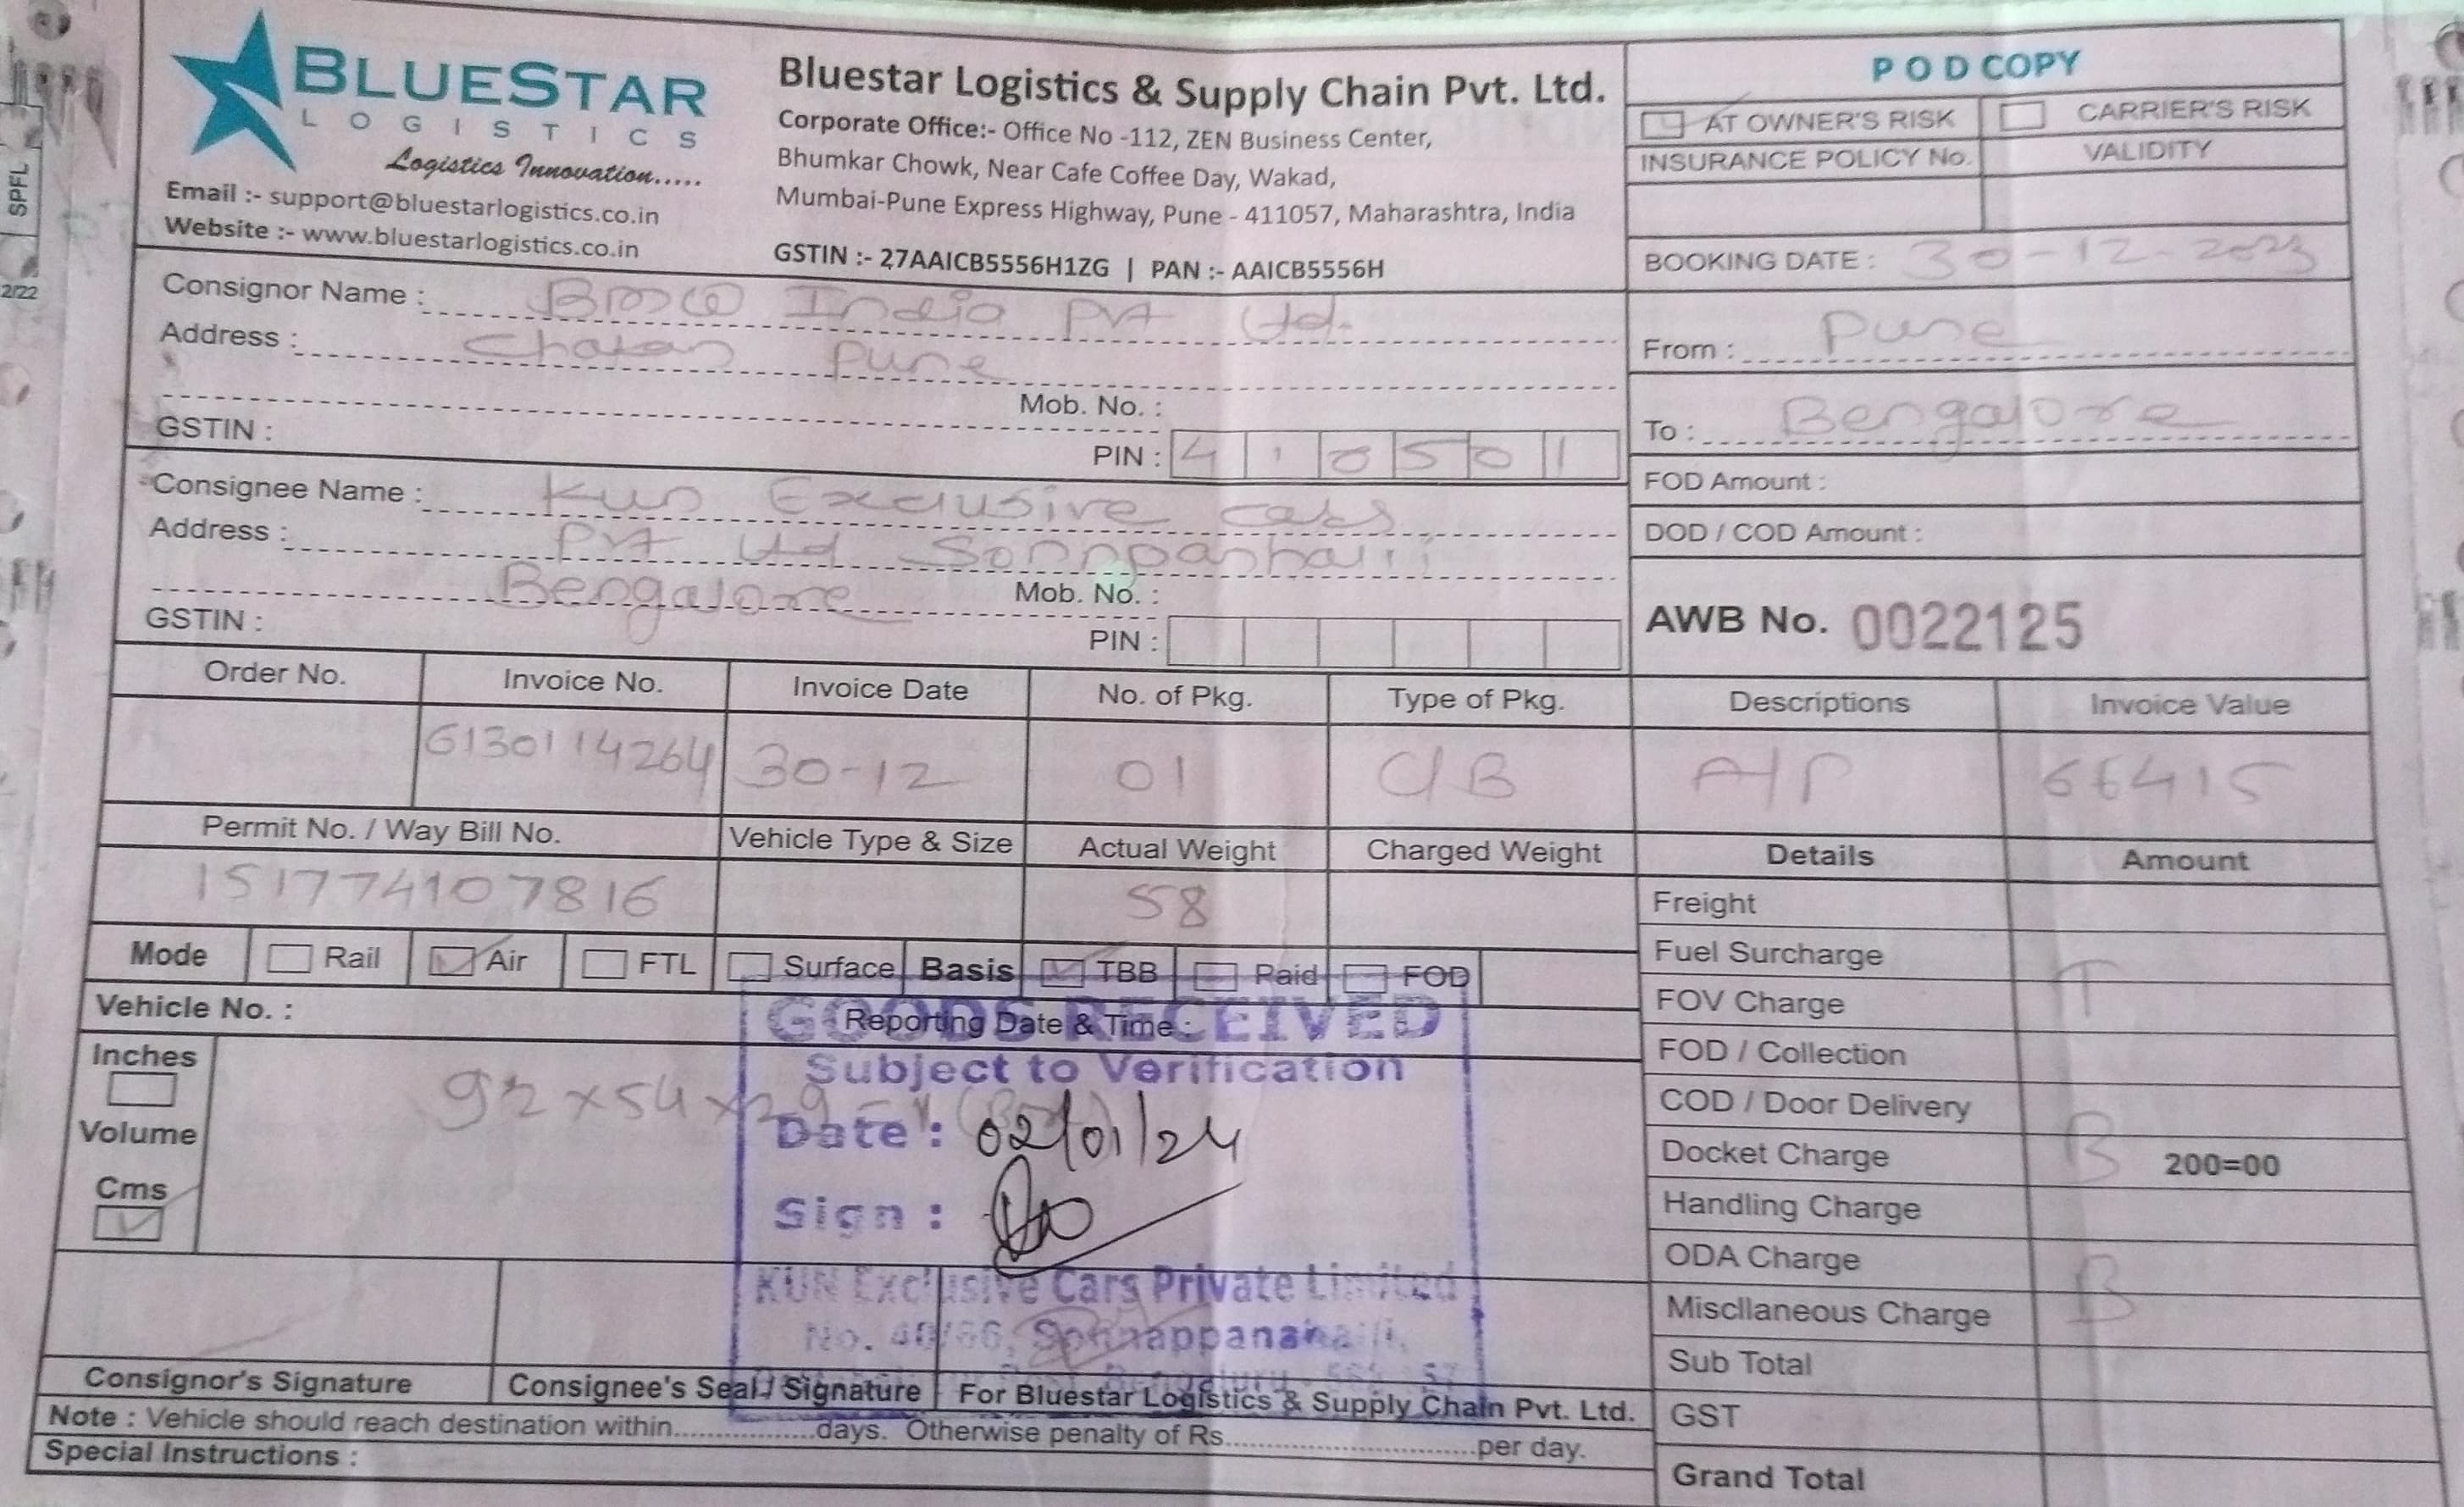 BLUESTAR
LOGISTICS
Logistics Innovation.....
Email :- support@bluestarlogistics.co.in
Website :- www.bluestarlogistics.co.in
Bluestar Logistics & Supply Chain Pvt. Ltd.
Corporate Office:- Office No -112, ZEN Business Center,
Bhumkar Chowk, Near Cafe Coffee Day, Wakad,
Mumbai-Pune Express Highway, Pune - 411057, Maharashtra, India
GSTIN :- 27AAICB5556H1ZG | PAN :- AAICB5556H
POD COPY
AT OWNER'S RISK CARRIER'S RISK
INSURANCE POLICY No. VALIDITY
BOOKING DATE : 30-12-2023
SPFL
2/22
Consignor Name : India Pvt Ltd.
Address : Chakan Pune
Mob. No. :
GSTIN :
PIN : 410501
From : Pune
To : Bengalore
Consignee Name : Kun Exclusive cars
Address : Pvt Ltd
Bengalore Mob. No. :
GSTIN :
PIN :
FOD Amount :
DOD / COD Amount :
AWB No. 0022125
Order No. Invoice No. Invoice Date No. of Pkg. Type of Pkg. Descriptions Invoice Value
6130114264 30-12 01 C/B A/P 66415
Permit No. / Way Bill No. Vehicle Type & Size Actual Weight Charged Weight Details Amount
151774107816 58
Mode Rail Air FTL Surface Basis TBB Paid FOD
Vehicle No. : Reporting Date & Time :
Inches
Volume
Cms
92 x 54 x 29
GOODS RECEIVED
Subject to Verification
Date : 02/01/24
Sign :
KUN Exclusive Cars Private Limited
No. 40/66, Sonnappanahalli,
Freight
Fuel Surcharge
T
FOV Charge
FOD / Collection
COD / Door Delivery
B
Docket Charge 200=00
Handling Charge
ODA Charge
B
Miscllaneous Charge
Sub Total
GST
Grand Total
Consignor's Signature Consignee's Seal / Signature For Bluestar Logistics & Supply Chain Pvt. Ltd.
Note : Vehicle should reach destination within.................days. Otherwise penalty of Rs..............................per day.
Special Instructions :